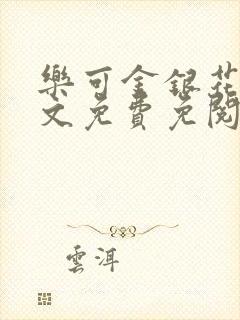 樂可金銀花
文免費免閱
雲洱